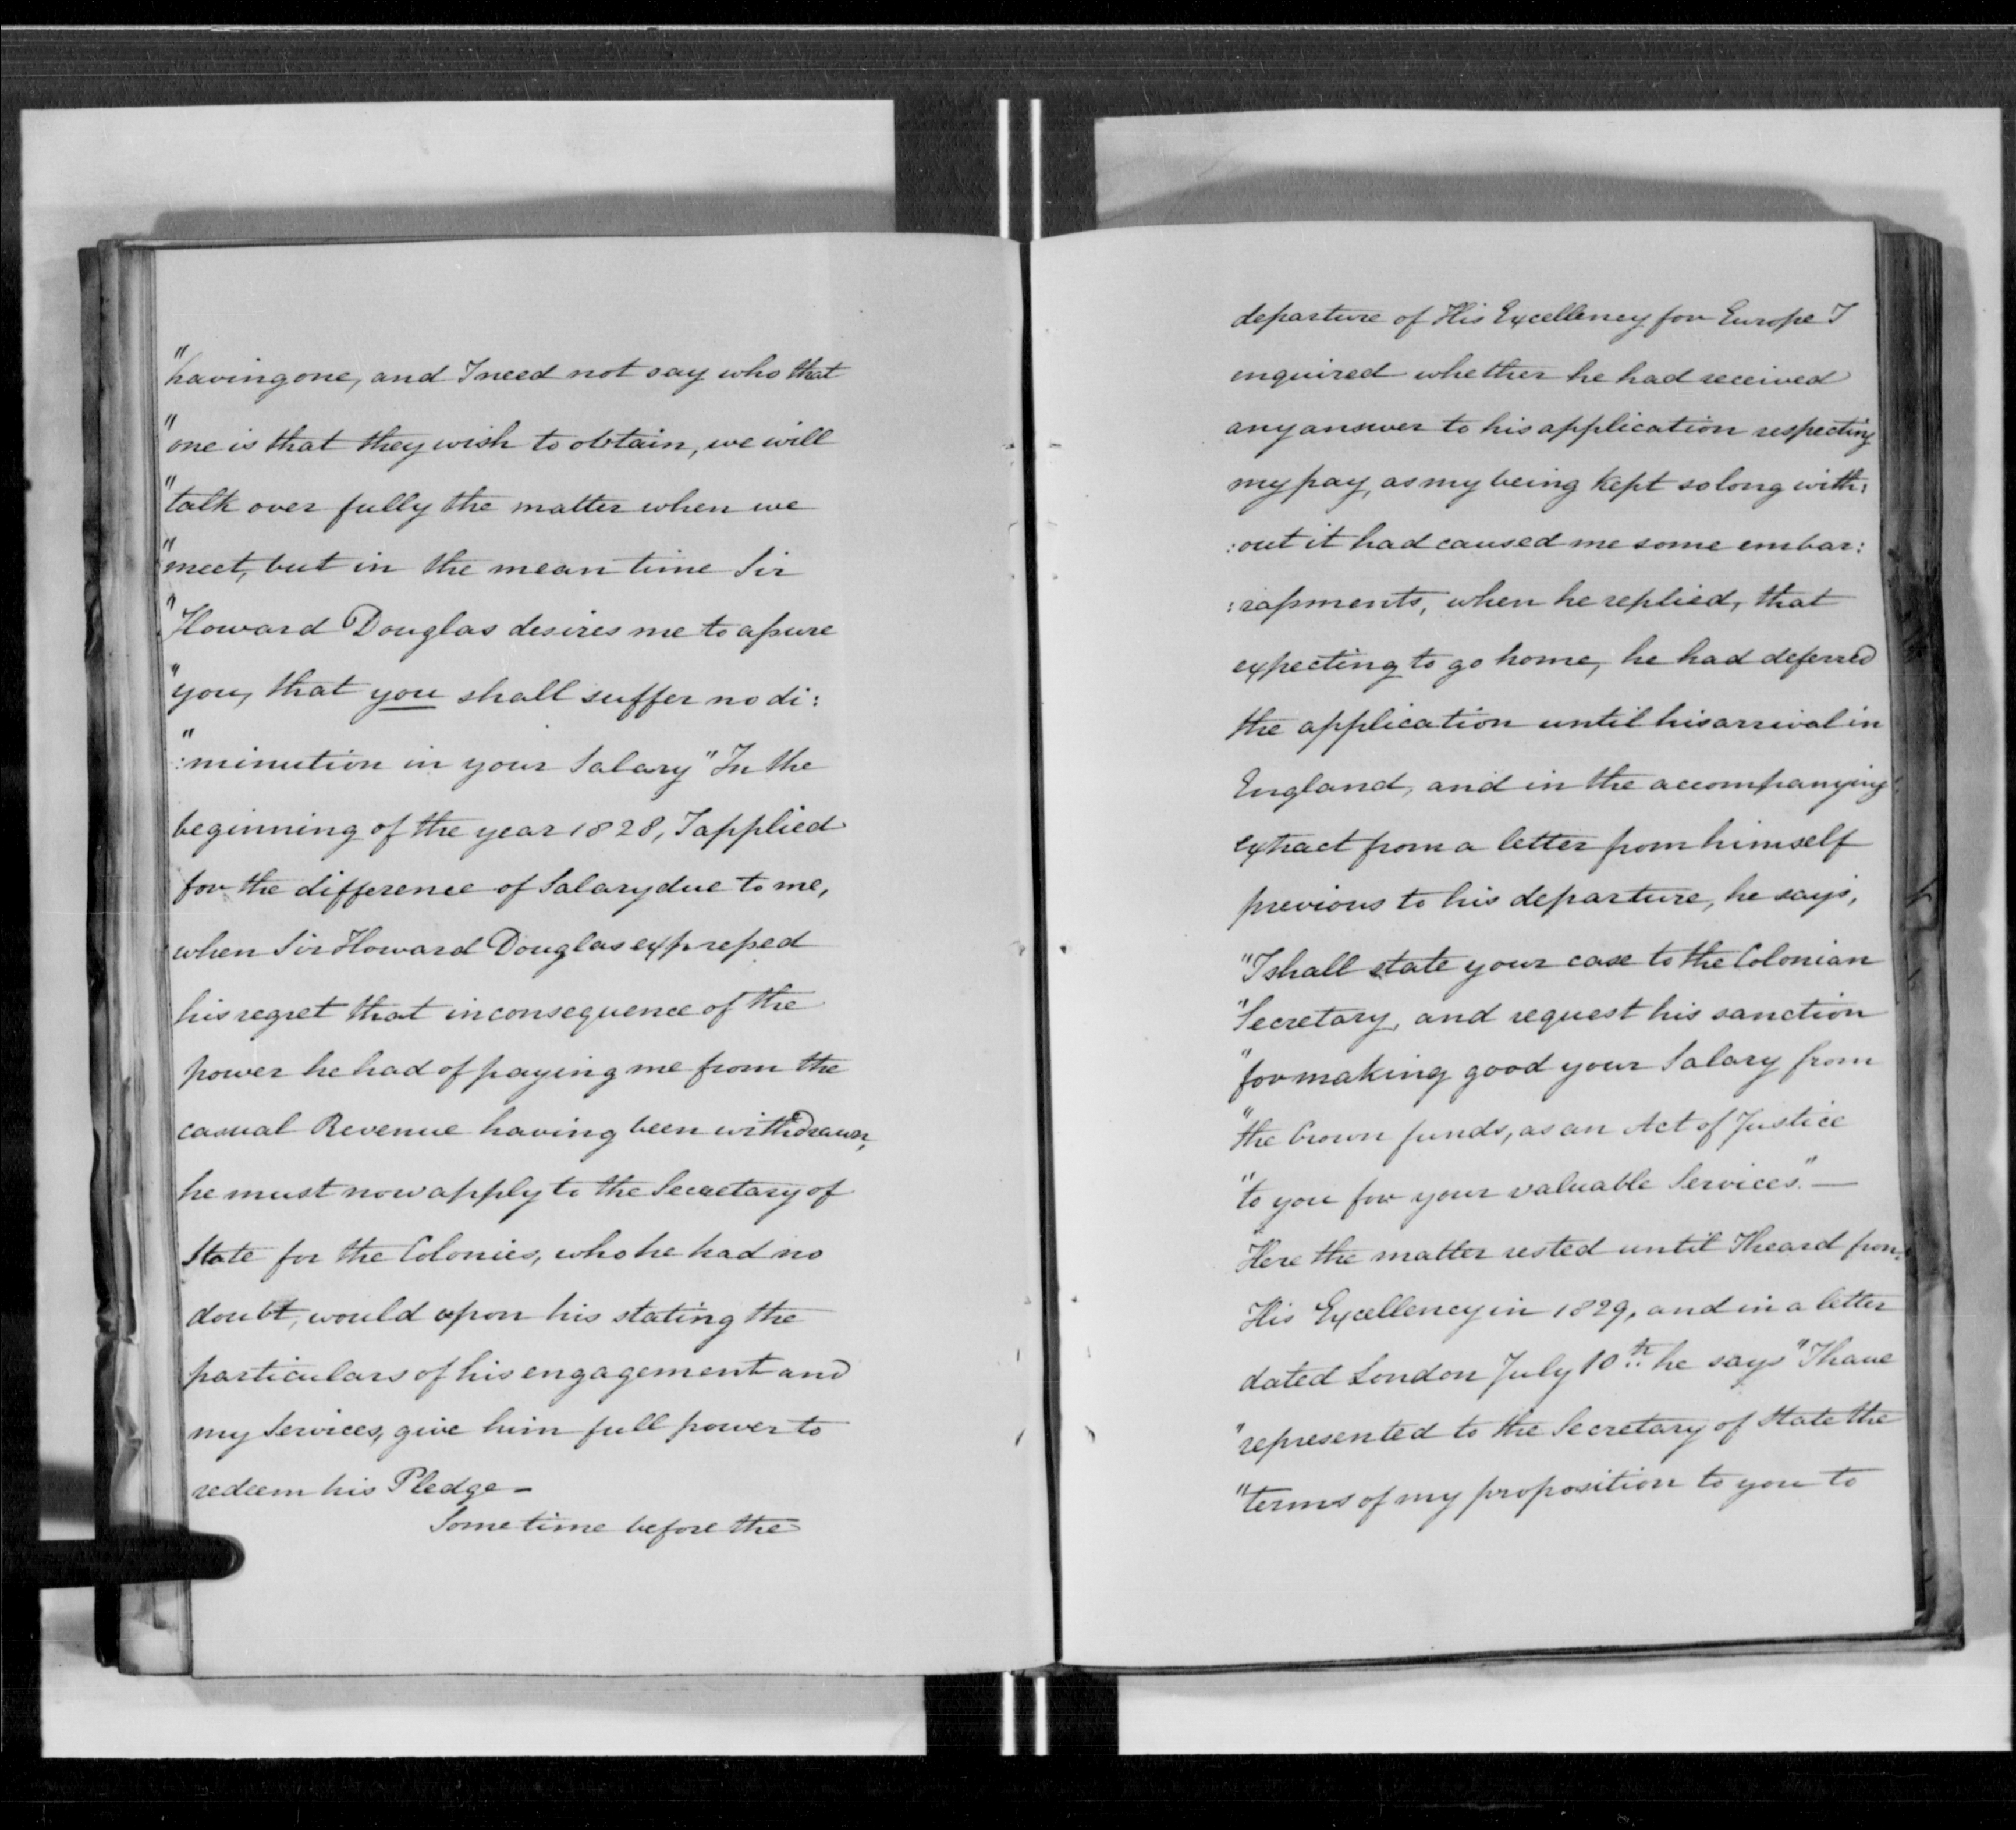 "having one, and I need not say who that
"one is that they wish to obtain, we will
"talk over fully the matter when we
"meet, but in the mean time Sir
"Howard Douglas desires me to assure
"you, that you shall suffer no di:
":minution in your Salary" In the
beginning of the year 1828, I applied
for the difference of Salary due to me,
when Sir Howard Douglas expressed
his regret that in consequence of the
power he had of paying me from the
casual Revenue having been withdrawn,
he must now apply to the Secretary of
State for the Colonies, who he had no
doubt, would upon his stating the
particulars of his engagement and
my Services, give him full power to
redeem his Pledge –
Some time before the
departure of His Excellency for Europe I
inquired whether he had received
any answer to his application respecting
my pay, as my being kept so long with:
:out it had caused me some embar:
:rassments, when he replied, that
expecting to go home, he had deferred
the application until his arrival in
England, and in the accompanying
extract from a letter from himself
previous to his departure, he says,
"I shall state your case to the Colonian
"Secretary, and request his sanction
"for making good your Salary from
"the Crown funds, as an Act of Justice
"to you for your valuable Services". —
Here the matter rested until I heard from
His Excellency in 1829, and in a letter
dated London July 10th he says "I have
"represented to the Secretary of State the
"terms of my proposition to you to